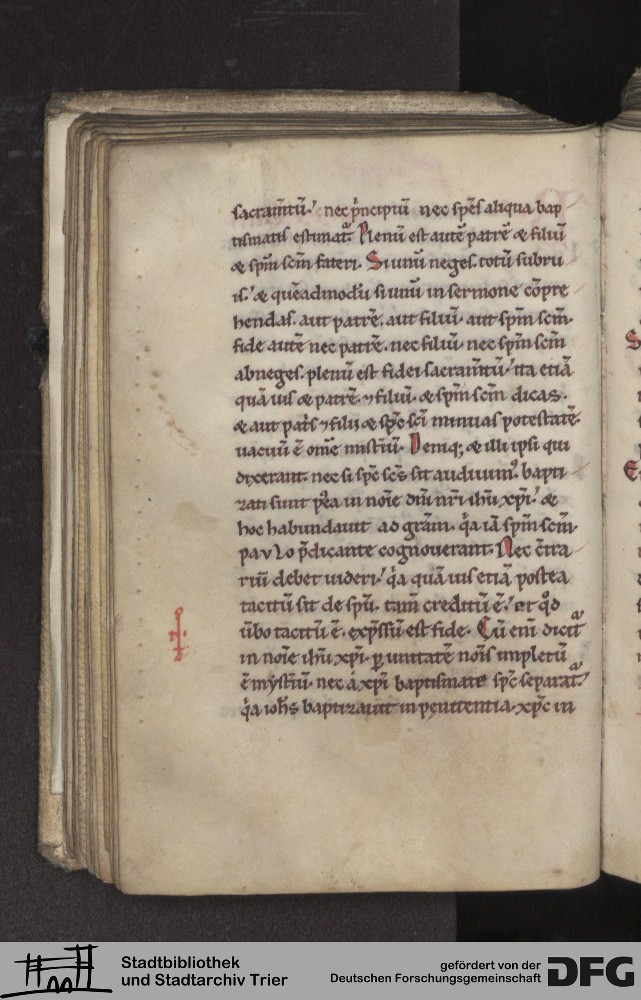 sacram̄tū. nec p̍ncipiū nec sp̄es aliqua bap
tismatis estimat᷑. Plenū est autē patrē & filiū
& sp̄m sc̄m fateri. Si unū neges. totū subru
is. & quēadmodū si unū in sermone cōpre
hendas. aut patrē. aut filiū. aut sp̄m sc̄m.
fide autē nec patrē. nec filiū. nec sp̄m sc̄m
abneges. plenū est fidei sacram̄tū. ita etiā
quāuis & patrē. ⁊ filiū. & sp̄m sc̄m dicas.
& aut pat̍s ⁊ filii & sp̄c sc̄i minuas potestatē.
uacuū ē om̄e mist̄iū. Deniq; & illi ipsi qui
dixerant. nec si sp̄c sc̄s sit audiuim᷒. bapti
zati sunt p̍ea in noīe dn̄i nr̄i ih̄u xp̄i. &
hoc habundauit ad gr̄am. q̍a iā sp̄m sc̄m
paulo p̄dicante cognouerant. Nec c̄tra
riū debet uideri. q̍a quāuis etiā postea
tacitū sit de sp̄u. tam̄ creditū ē. et qd̄
ūbo tacitū ē. exp̄ssū est fide. Cū eni̅ dicit᷑
in noīe ih̄u xp̄i. ꝑ unitatē noīs impletū
ē myst̄iū. nec a xp̄i baptismate sp̄c separat᷑.
q̍a ioh̄s baptizauit in penitentia. xp̄c in
Stadtbibliothek
und Stadtarchiv Trier
gefördert von der
Deutschen Forschungsgemeinschaft
DFG